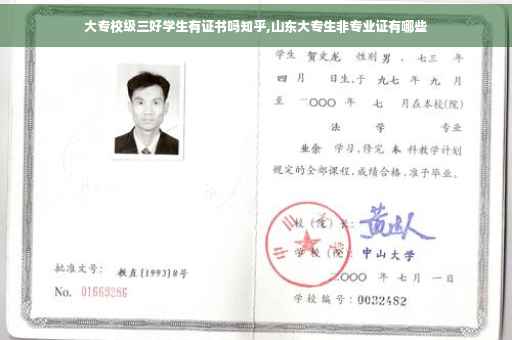 大专校级三好学生有证书吗知乎,山东大专生非专业证有哪些
学生 贺文龙 性别 男 、七三 年
四 月 日生,于 九七 年 九 月
至 二〇〇〇 年 七 月在本校(院)
法 学 专业
业余 学习,修完 本 科教学计划
规定的全部课程,成绩合格,准予毕业。
校 (院) 长:
学 校 (院): 中山大学
二〇〇〇 年 七 月 一 日
学校编号: 0032482
批准文号: 教直(1993)8号
No. 01669286